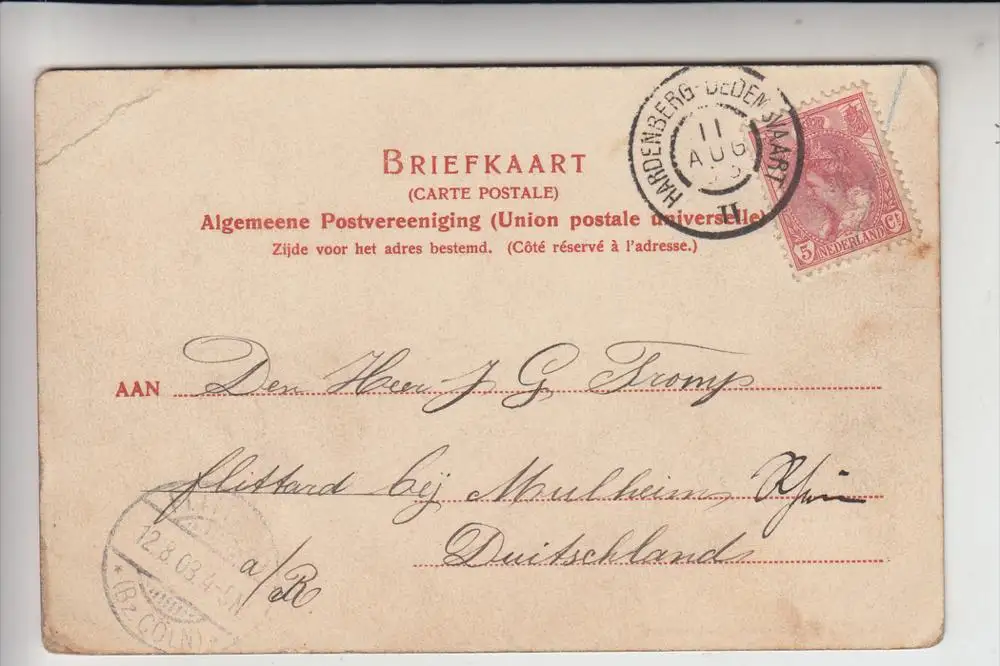 HARDENBERG-DEDEMSVAART
11
AUG
II
5 NEDERLAND Ct
BRIEFKAART
(CARTE POSTALE)
Algemeene Postvereeniging (Union postale universelle)
Zijde voor het adres bestemd. (Côté réservé à l'adresse.)
AAN Den Heer J G Tromp
flittard bij Mulheim, Rhein
Duitschland
a/R.
12.8.03.4-5N
* (Bz. CÖLN) *